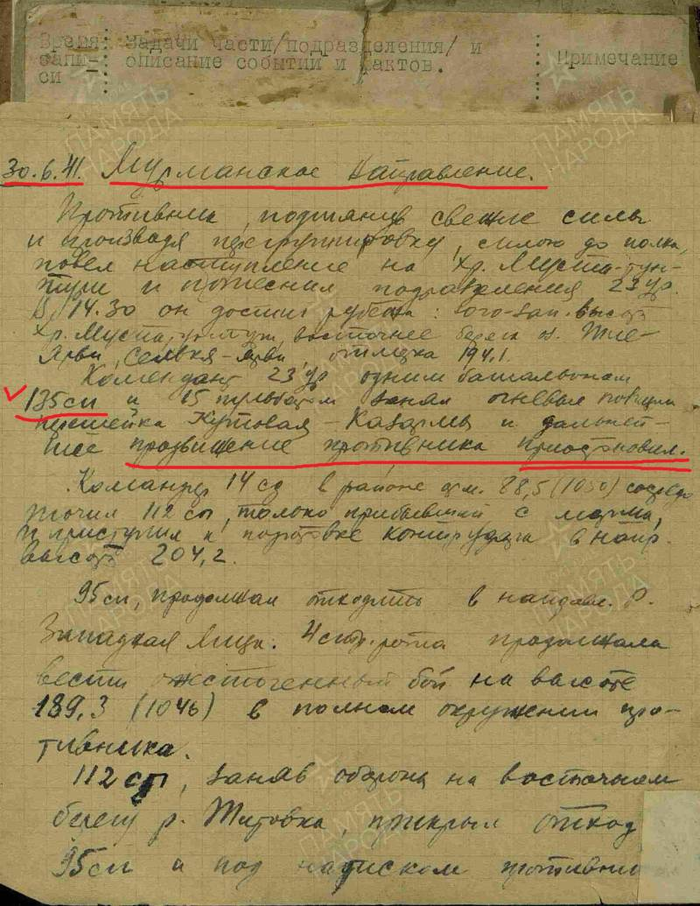 Время запи- си
Задачи части/подразделения/ и описание событий и фактов.
Примечание
30.6.41. Мурманское направление.
Противник, подтянув свежие силы
и произведя перегруппировку, силою до полка,
повел наступление на Хр. Муста-тун-
тури и потеснил подразделения 23 ур.
В 14.30 он достиг рубежа: юго-зап. высот
Хр. Муста-тунтури, восточнее берег
Ярви, отметка 194,1.
Комендант 23 ур одним батальоном
135сп и 15 пульбатом занял огневые позиции
перешейка Кутовая - Казармы и дальней-
шее продвижение противника приостановил.
Командир 14 сд в районе выс. 88,5 (1030) сосредо
точил 112 сп, только прибывший с марша,
и приступил к подготовке контрудара в напр.
высоты 204,2.
95сп, продолжал отходить в направл. р.
Западная Лица. 4 рота продолжала
вести ожесточенный бой на высоте
189,3 (1046) в полном окружении про-
тивника.
112 сп, заняв оборону на восточном
берегу р. Титовка, прикрыл отход
95сп и под натиском противни
ПАМЯТЬ НАРОДА